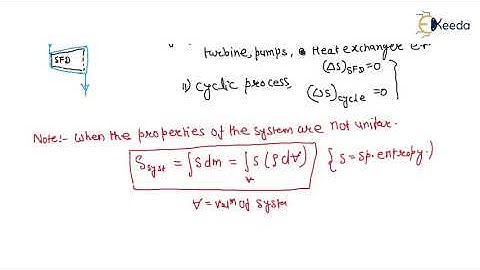 Ekeeda
turbine, pumps, Heat exchanger
SFD
(ΔS)SFD = 0
ii) cyclic process,
(ΔS)cycle = 0
Note:- when the properties of the system are not uniform.
Ssyst = ∫sdm = ∫v s(ρdV) { s = sp. entropy. }
V = volm of syste